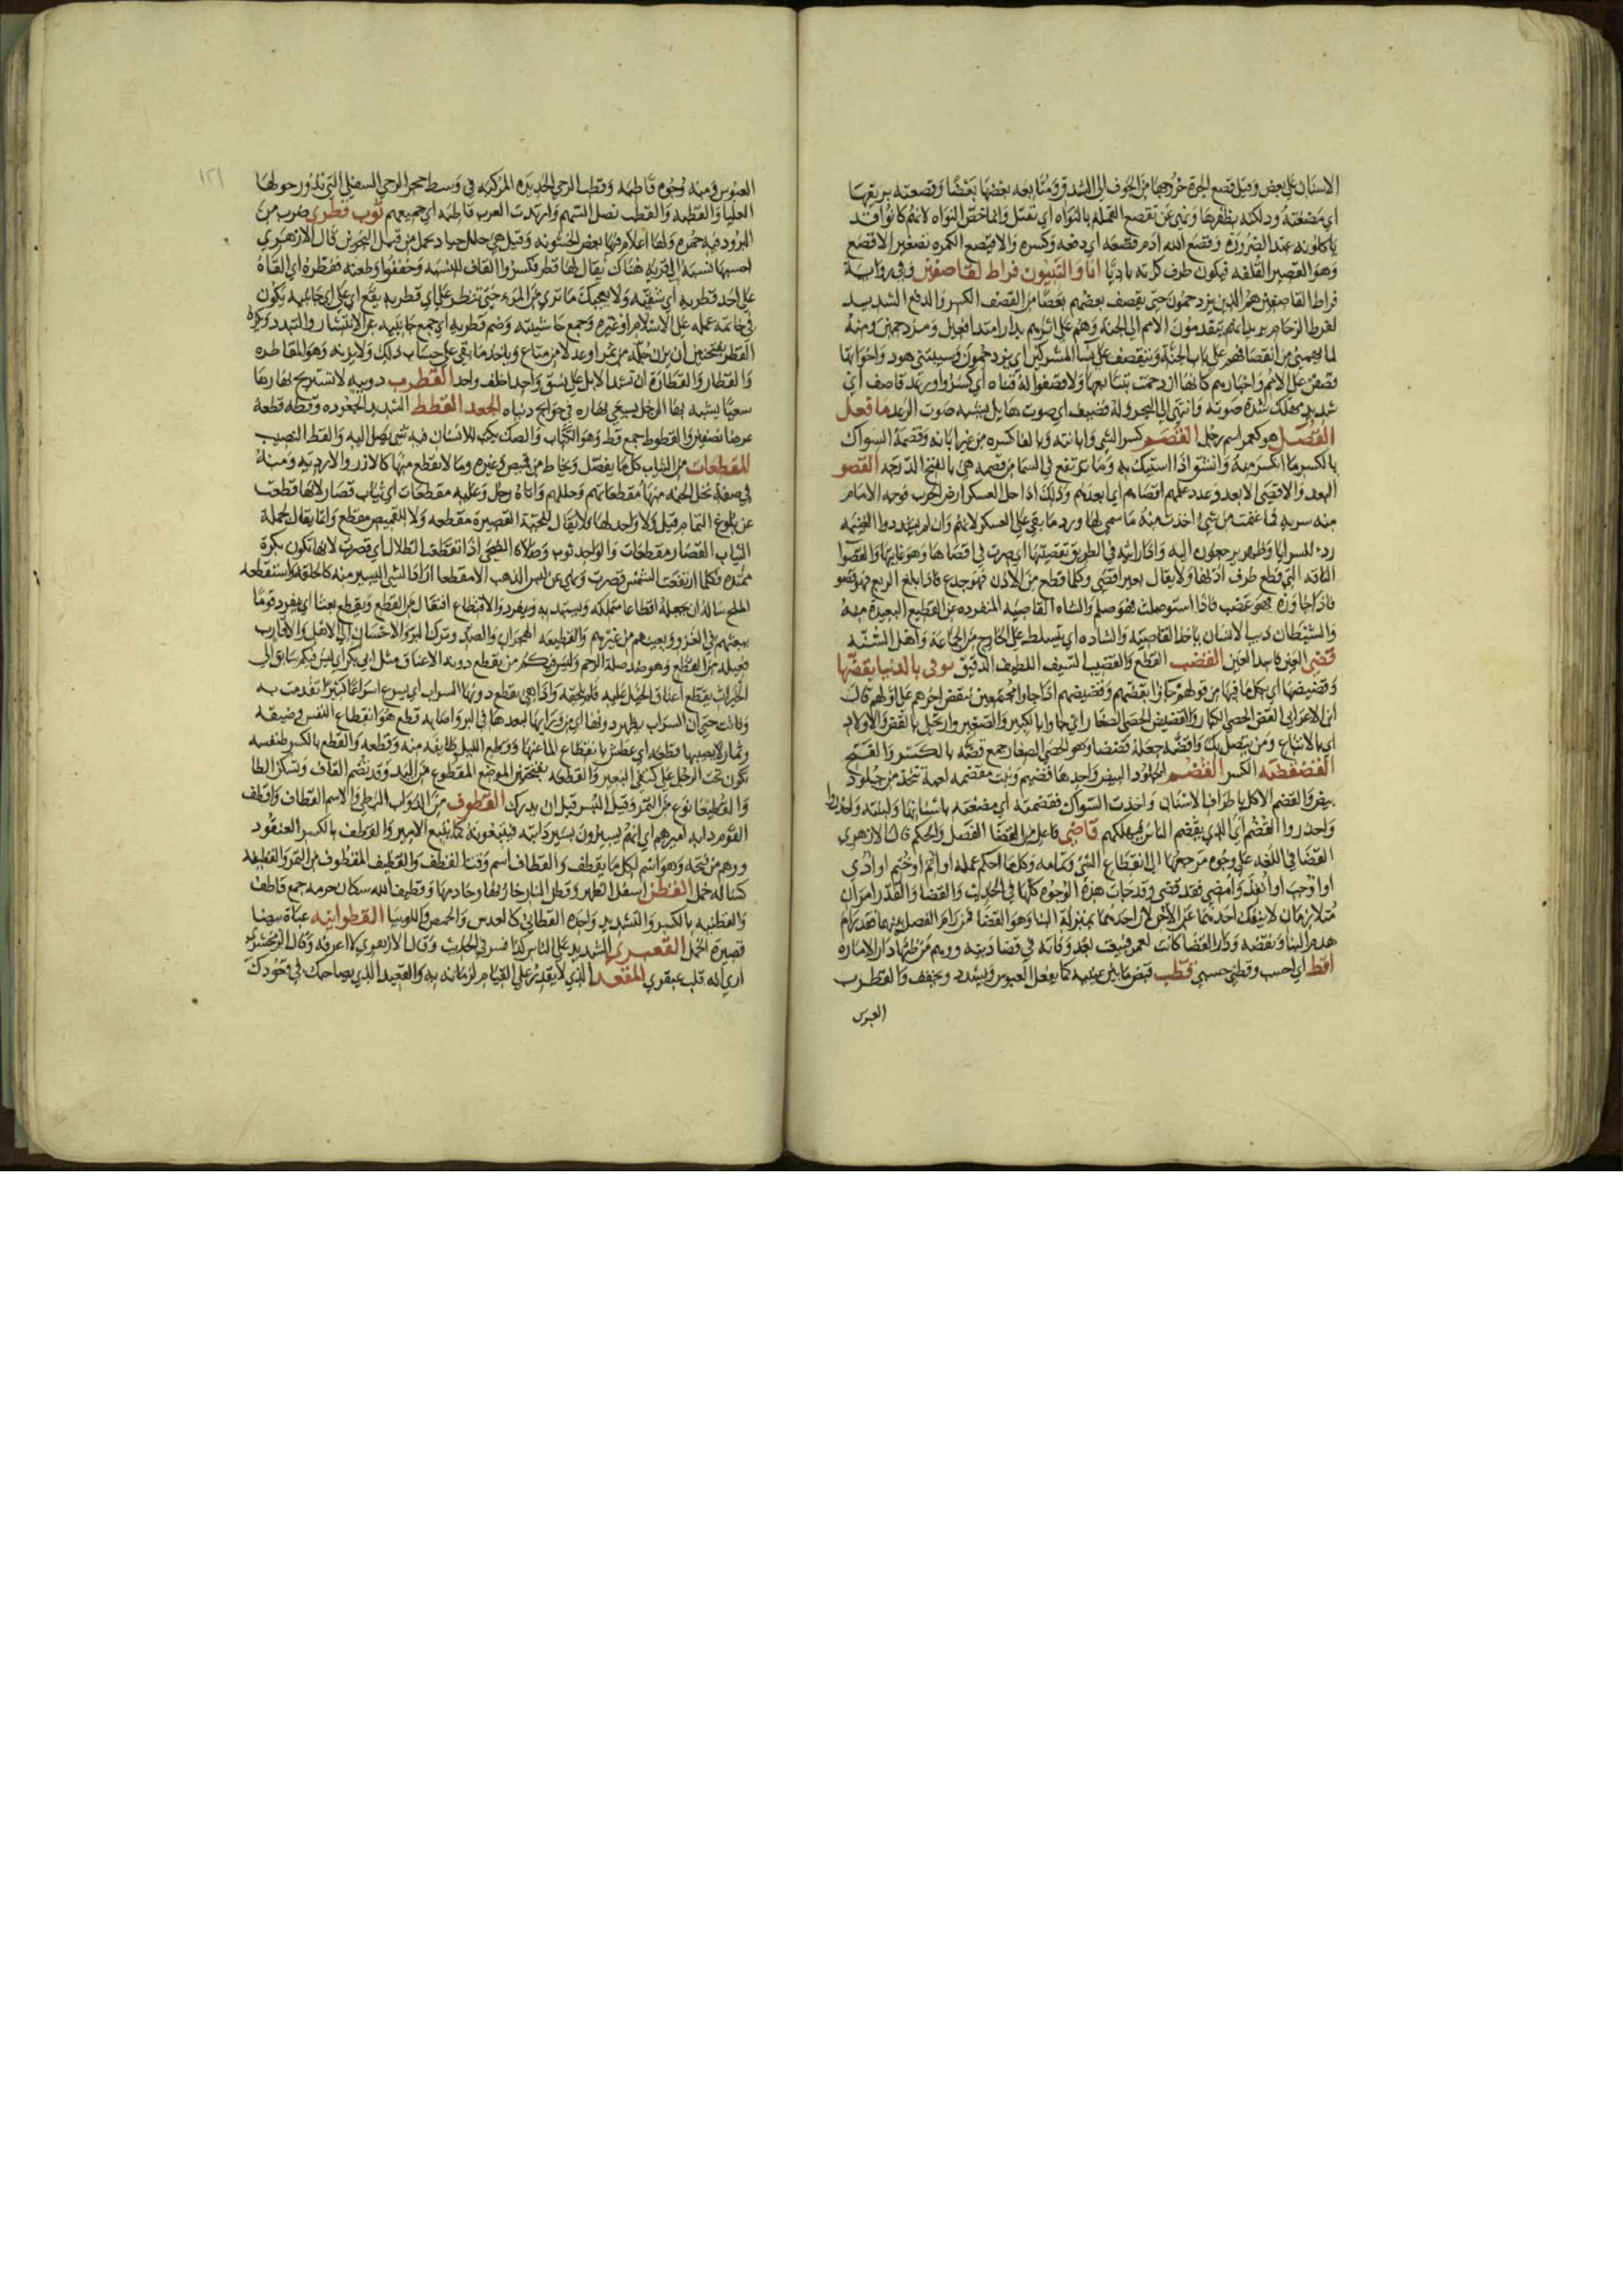 الاسنان على بعض وقيل قصع الجرة خروجها من الجوف الى الشدق ومتابعه بعضها بعضا وقصعته بريقها
اي مضغته ودلكته بظفرها ونهى عن تقصع القملة بالنواه اي تقتل وانما خص النواه لانهم كانوا قد
ياكلونه عند الضرورة وقصع الله ادم قصعه اي دفعه وكسره والاقيصع الكمره تصغير الاقصع
وهو القصير القلفه فيكون طرف كمرته باديا انا والنبيون فراط لقاصفين وفي رواية
فراط القاصفين هم الذين يزدحمون حتى يقصف بعضهم بعضا من القصف الكسر والدفع الشديد
لفرط الزحام يريد انهم يتقدمون الامم الى الجنة وهم على اثرهم بدارا متدافعين ومزدحمين ومنه
لما يهمني من انقصافهم على باب الجنة ويتقصف عليه نسا المشركين اي يزدحمون وشيبتني هود واخواتها
قصفن علي الامم واخبارهم كانها ازدحمت بتتابعها ولا قصفوا له قناه اي كسروا ورعد قاصف اي
شديد مهلك شدة صوته وانتهى الى البحر وله قصيف اي صوت هايل يشبه صوت الرعد ما فعل
القصل هو كعمر اسم رجل القصم كسر الشي وابانته وبالفا كسره من غير ابانه وقصمة السواك
بالكسر ما انكسر منه وانشق اذا استيك به وما ترتفع في السما من قصمه هي بالفتح الدرجه القصو
البعد والاقصى الابعد وعدد عملهم اقصاهم اي ابعدهم وذلك اذا دخل العسكر ارض الحرب فوجه الامام
منه سريه فما غنمت من شي اخذت منه ما سمى لها ورد ما بقي على العسكر لانهم وان لم يشهدوا الغنيمه
رد للسرايا وظهر يرجعون اليه
الناقه التي قطع طرف اذنها ولا يقال بعير اقصى وكلما قطع من الاذن فهو جدع فاذا بلغ الربع فهو قصو
فاذا جاوزه فهو عضب فاذا استوصلت فهو صلم والشاه القاصيه المنفرده عن القطيع البعيدة منه
والشيطان ذيب الانسان ياخذ القاصيه والشاده اي يتسلط على الخارج من الجماعة واهل السنه
قضئ العين فاسد العين القضب القطع والقضيب السيف اللطيف الدقيق يوتى بالدنيا بقضها
وقضيضها اي بكل ما فيها من قولهم جاوا بقضهم وقضيضهم اذا جاوا مجتمعين ينقض اخرهم على اولهم قال
ابن الاعرابي القض الحصى الكبار والقضيض الحصى الصغار اي جاوا بالكبير والصغير وارتحل بالقض والاولاد
اي بالاتباع ومن يتصل بك واقتضه جعله قضضا وهو الحصى الصغار جمع قضه بالكسر والفتح
القضقضه الكسر القضم الجلود البيض واحدها قضيم وبنت مقضمه لعبة تتخذ من جلود
بيض والقضم الاكل باطراف الاسنان واخذت السواك فقضمته اي مضغته باسنانها ولينته واحذروا
واحذروا القضم اي الذي يقضم الناس فيهلكهم قاضى فاعل من القضا الفصل والحكم قال الازهري
القضا في اللغه على وجوه مرجعها الى انقطاع الشي وتمامه وكلما احكم عمله او اتم او ختم او ادي
او اوجب او انفذ وامضي فقد قضي وقد جات هذه الوجوه كلها في الحديث والقضا والقدر امران
متلازمان لا ينفك احدهما عن الاخر لان احدهما بمنزلة البنا وهو القضا فمن رام الفصل بينهما فقد رام
هدم البنا ونقضه ودار القضا كانت لعمر فبيعت بعد وفاته في قضا دينه ووهم من ظنها دار الاماره
اقط اي احسب وقطني حسبي قطب قبض ما بين عينيه كما يفعل العبوس ويشدد ويخفف والقطوب
العبوس
العبوس ومنه وجوه قاطبه وقطب الرحى الحديده المركبه في وسط حجر الرحى السفلى التي تدور حولها
العليا والقطبه والقطب نصل السهم وارتدت العرب قاطبه اي جميعهم ثوب قطري ضرب من
البرود فيه حمره ولها اعلام فيها بعض الخشونه وقيل هي حلل جياد تحمل من قبل البحرين قال الازهري
احسبها نسبة الى قرية هناك يقال لها قطر فكسروا القاف للنسبه وخففوا وطعنه فقطره اي القاه
على احد قطريه اي شقيه ولا يعجبك ما ترى من المرء حتى تنظر على اي قطريه يقع اي على اي جانبيه يكون
في خاتمة عمله على الاسلام او غيره وجمع حاشيته وضم قطريه اي جمع جانبيه عن الانتشار والتبدد وكره
القطر بفتحتين ان يزن جلة من تمر او عدلا من متاع وياخذ ما بقي على حساب ذلك ولا يزنه وهو المقاطره
والقطار والقطارة ان تشد الابل على نسق واحدا خلف واحد القطرب دويبه لا تستريح نهارها
سعيا يشبه بها الرجل يسعى نهاره في حوايج دنياه الجعد القطط الشديد الجعوده وقطه قطعه
عرضا نصفين والقطوط جمع قط وهو الكتاب والصك يكتب للانسان فيه شي يصل اليه والقط النصيب
المقطعات من الثياب كل ما يفصل ويخاط من قميص وغيره وما لا يقطع منها كالازر والارديه ومنه
في صفة نخل الجنه منها مقطعاتهم وحللهم واتاه رجل وعليه مقطعات اي ثياب قصار لانها قطعت
عن بلوغ التمام قيل ولا واحد لها فلا يقال للجبة القصيرة مقطعه ولا للقميص مقطع وانما يقال لجملة
الثياب القصار مقطعات والواحد ثوب وصلاة الضحى اذا تقطعت الظلال اي قصرت لانها تكون بكرة
ممتده فكلما ارتفعت الشمس قصرت ونهى عن لبس الذهب الا مقطعا اراد الشي اليسير منه كالحلقه واستقطعه
الملح ساله ان يجعله اقطاعا متملكه ويستبد به وينفرد والاقتطاع افتعال من القطع ويقطع بعثا اي يفرد قوما
يبعثهم في الغزو ويعينهم من غيرهم والقطيعه الهجران والصد وترك البر والاحسان الى الاهل والاقارب
فعيله من القطع وهو ضد صلة الرحم وليس فيكم من تقطع دونه الاعناق مثل ابي بكر اي ليس فيكم سابق الى
الخيرات يقطع اعناق الخيل عليه فلم تلحقه واذا هي يقطع دونها السراب اي يسرع اسراعا كثيرا تقدمت به
وفاتت حتى ان السراب يظهر دونها اي من ورايها لبعدها في البر واصابه قطع هو انقطاع النفس وضيقه
وثمار لا يصيبها قطعه اي عطش بانقطاع الما عنها وقطع الليل طايفه منه وقطعه والقطع بالكسر طنفسه
تكون تحت الرحل على كتفي البعير والقطعه بفتحتين الموضع المقطوع من اليد وقد تضم القاف وتسكن الطا
والقطيعا نوع من التمر وقيل البسر قبل ان يدرك القطوف من الدواب البطي والاسم القطاف واقطف
القوم دابه اميرهم اي انهم يسيرون بسير دابته فيتبعونه كما يتبع الامير والقطف بالكسر العنقود
ووهم من فتحه وهو اسم لكل ما يقطف والقطاف اسم وقت القطف والقطيف المقطوف من التمر والقطيفه
كسا له خمل القطن اسفل الظهر وقطن النار خازنها وخادمها وقطين الله سكان حرمه جمع قاطن
والقطنيه بالكسر والتشديد واحدة القطاني كالعدس والحمص واللوبيا القطوانيه عباة بيضا
قصيرة الخمل القعبري الشديد على الناس كذا فسر في الحديث وقال الازهري لا اعرفه وقال الزمخشري
اري انه قلب عبقري المقعد الذي لا يقدر على القيام لزمانه به والقعيد الذي يصاحبك في قعودك
١٢١